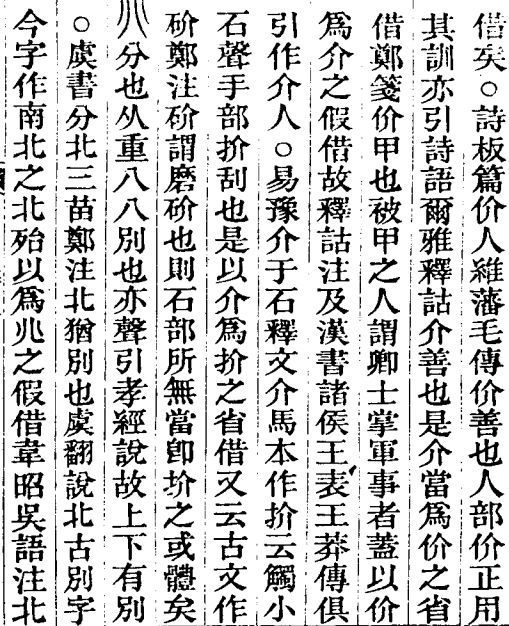 借矣○詩板篇价人維藩毛傳价善也人部价正用
其訓亦引詩語爾雅釋詁介善也是介當爲价之省
借鄭箋价甲也被甲之人謂卿士掌軍事者蓋以价
爲介之假借故釋詁注及漢書諸侯王表王莽傳俱
引作介人○易豫介于石釋文介馬本作扴云觸小
石聲手部扴刮也是以介爲扴之省借又云古文作
砎鄭注砎謂磨砎也則石部所無當卽扴之或體矣
𠔁分也从重八八別也亦聲引孝經說故上下有別
○虞書分北三苗鄭注北猶別也虞翻說北古別字
今字作南北之北殆以爲𠔁之假借韋昭吳語注北